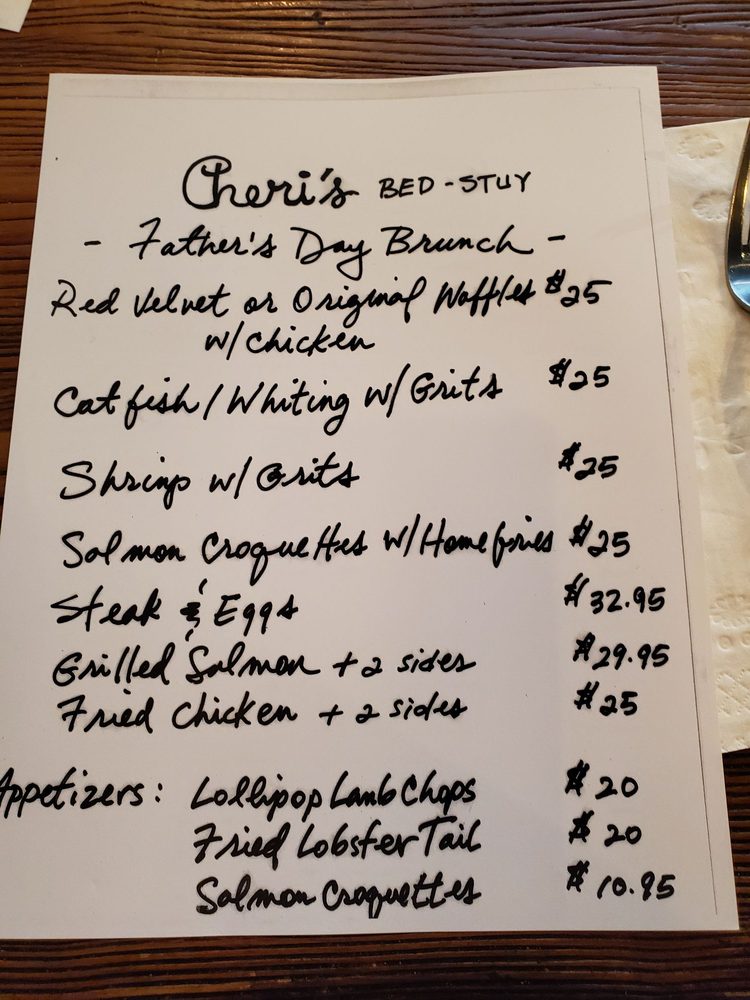 Cheri's BED-STUY
- Father's Day Brunch -
Red Velvet or Original Waffles $25
w/ chicken
Catfish/Whiting w/ Grits $25
Shrimp w/ Grits $25
Salmon Croquettes w/ Homefries $25
Steak & Eggs $32.95
Grilled Salmon + 2 sides $29.95
Fried Chicken + 2 sides $25
Appetizers: Lollipop Lamb Chops $20
Fried Lobster Tail $20
Salmon Croquettes $10.95